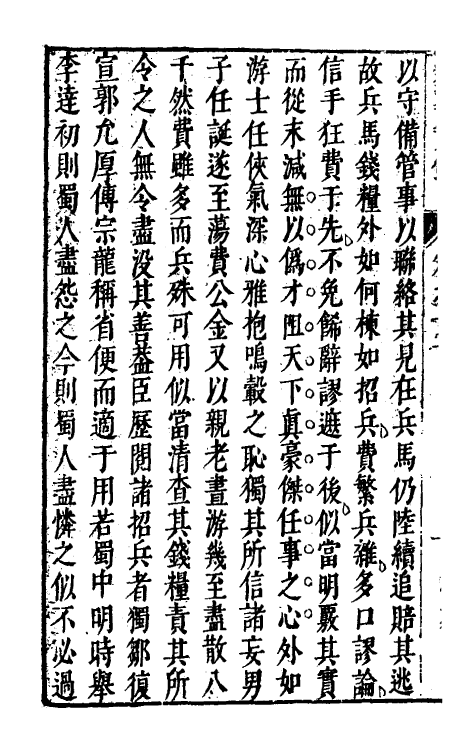 以守備管事以聯絡其見在兵馬仍陸續追賠其逃
故兵馬錢糧外如何棟如招兵費繁兵雜多口謬論
信手狂費于先不免餙辭謬遮于後似當明覈其實
而從末減無以僞才阻天下眞豪傑任事之心外如
游士任俠氣深心雅抱鳴轂之恥獨其所信諸妄男
子任誕遂至蕩費公金又以親老晝游幾至盡散八
千然費雖多而兵殊可用似當清查其錢糧責其所
令之人無令盡没其善葢臣歷閱諸招兵者獨鄒復
宣郭允厚傳宗龍稱省便而適于用若蜀中明時舉
李達初則蜀人盡怨之今則蜀人盡憐之似不必過